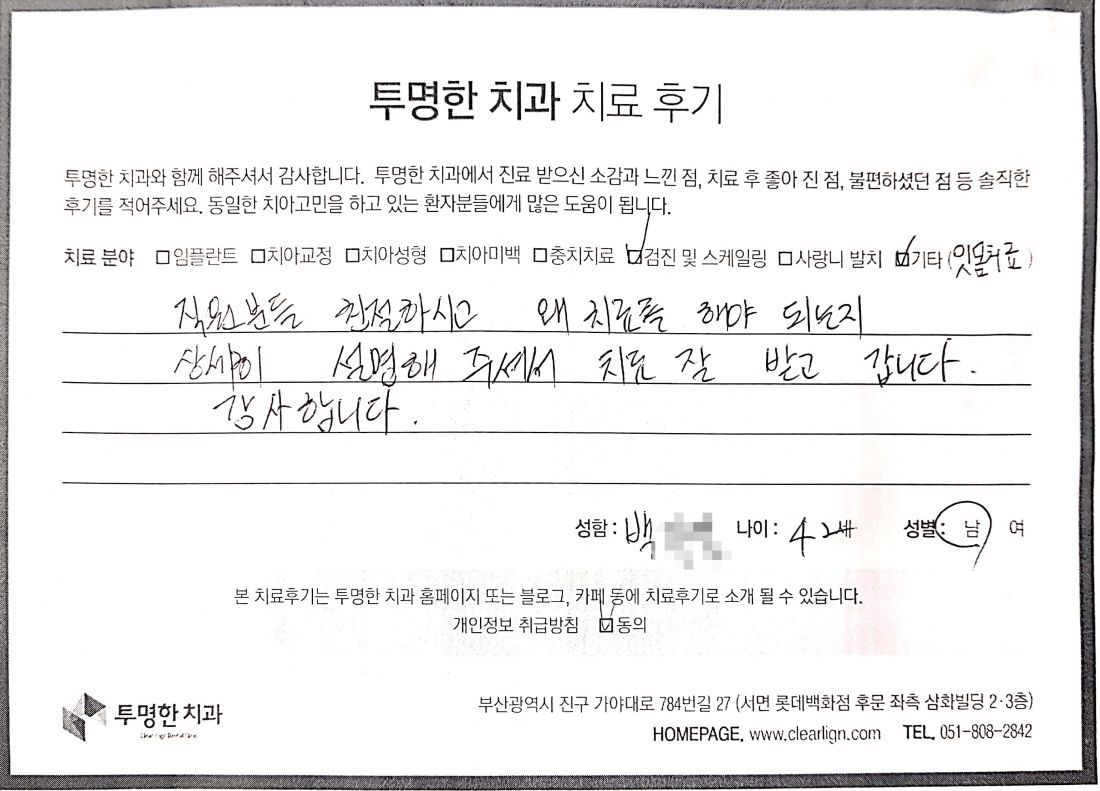 투명한 치과 치료 후기
투명한 치과와 함께 해주셔서 감사합니다. 투명한 치과에서 진료 받으신 소감과 느낀 점, 치료 후 좋아 진 점, 불편하셨던 점 등 솔직한
후기를 적어주세요. 동일한 치아고민을 하고 있는 환자분들에게 많은 도움이 됩니다.
치료 분야 □임플란트 □치아교정 □치아성형 □치아미백 □충치치료 ☑검진 및 스케일링 □사랑니 발치 ☑기타 (잇몸치료)
직원분들 친절하시고 왜 치료를 해야 되는지
상세이 설명해 주셔서 치료 잘 받고 갑니다.
감사합니다.
성함 : 백 나이 : 42세 성별 : 남 여
본 치료후기는 투명한 치과 홈페이지 또는 블로그, 카페 등에 치료후기로 소개 될 수 있습니다.
개인정보 취급방침 ☑동의
투명한 치과
부산광역시 진구 가야대로 784번길 27 (서면 롯데백화점 후문 좌측 삼화빌딩 2·3층)
HOMEPAGE. www.clearlign.com TEL. 051-808-2842